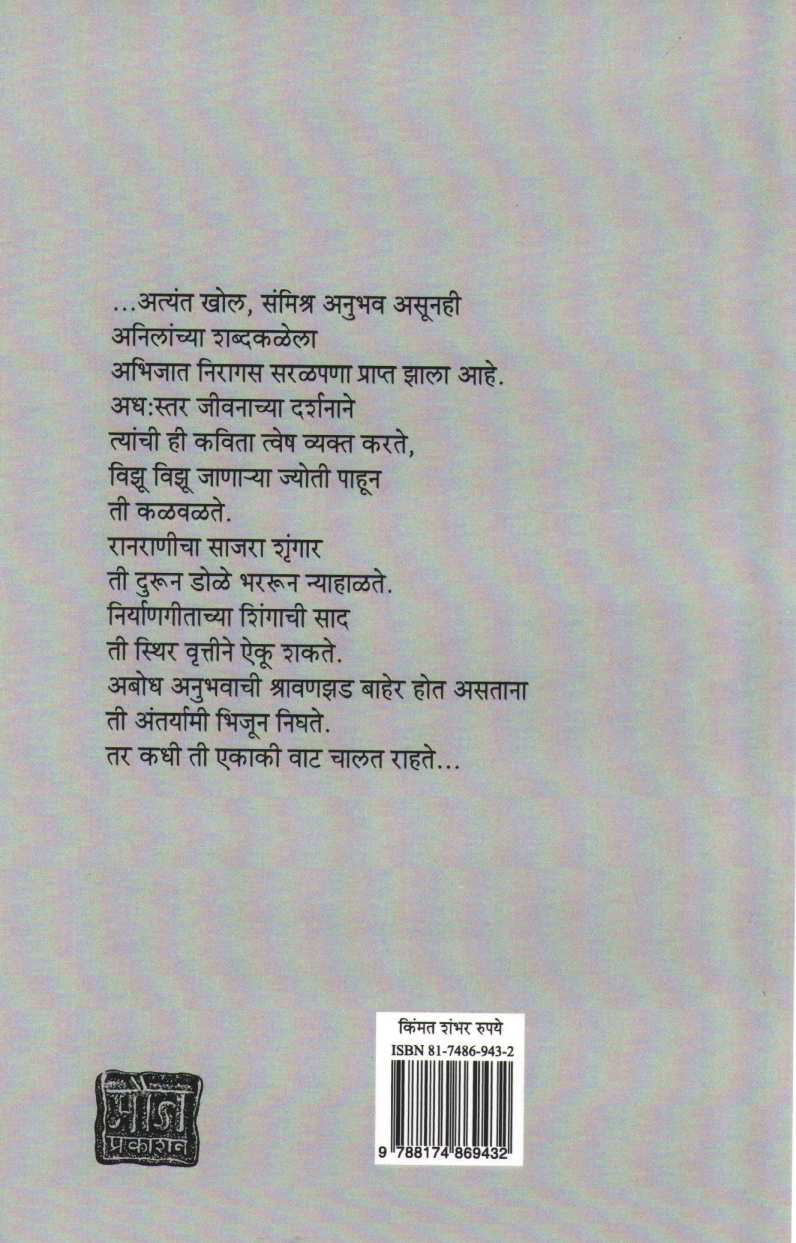 ...अत्यंत खोल, संमिश्र अनुभव असूनही
अनिलांच्या शब्दकळेला
अभिजात निरागस सरळपणा प्राप्त झाला आहे.
अधःस्तर जीवनाच्या दर्शनाने
त्यांची ही कविता त्वेष व्यक्त करते,
विझू विझू जाणाऱ्या ज्योती पाहून
ती कळवळते.
रानराणीचा साजरा शृंगार
ती दुरून डोळे भररून न्याहाळते.
निर्याणगीताच्या शिंगाची साद
ती स्थिर वृत्तीने ऐकू शकते.
अबोध अनुभवाची श्रावणझड बाहेर होत असताना
ती अंतर्यामी भिजून निघते.
तर कधी ती एकाकी वाट चालत राहते...
किंमत शंभर रुपये
ISBN 81-7486-943-2
9 788174 869432
मौज
प्रकाशन